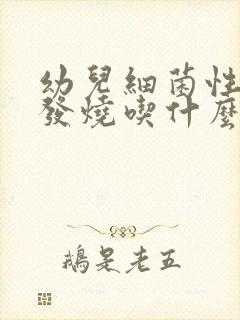 幼兒細菌性
發燒喫什麼
鵝是老五